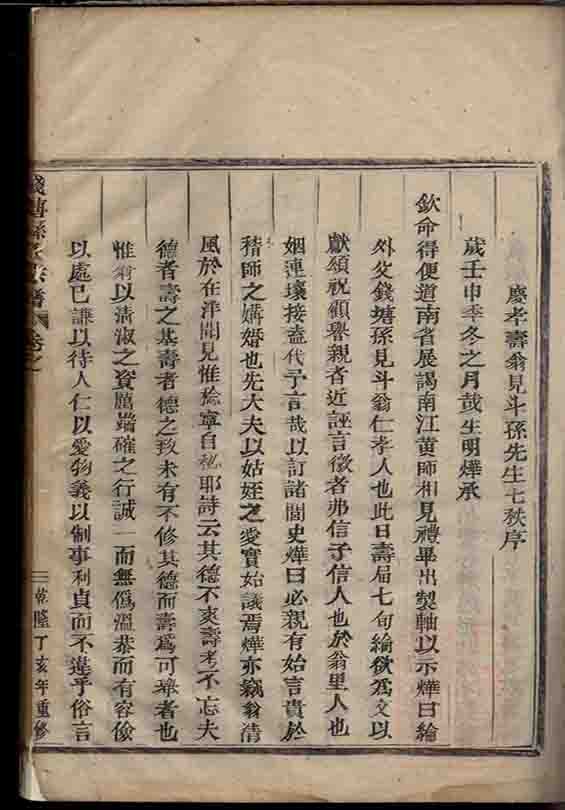 慶孝壽翁見斗孫先生七秩序
歲壬申季冬之月哉生明燁承
欽命得便道南省展謁南江黃師相見禮畢出製軸以示燁曰綸
外父錢塘孫見斗翁仁孝人也此日壽屆七旬綸欲為文以
獻頌祝顧譽親者近誣言徵者弗信子信人也於翁里人也
姻連壤接盍代予言哉以訂諸閫史燁曰必親有始言責於
稽師之媾婚也先大夫以姑姪之愛實始議焉燁亦竊翁清
風於在泮聞見惟稔寧自秘耶詩云其德不爽壽考不忘夫
德者壽之基壽者德之致未有不修其德而壽為可臻者也
惟翁以清淑之資厲端確之行誠一而無偽溫恭而有容儉
以處己謙以待人仁以愛物義以制事利貞而不違乎俗言
錢塘孫氏宗譜 卷之一
乾隆丁亥年重修